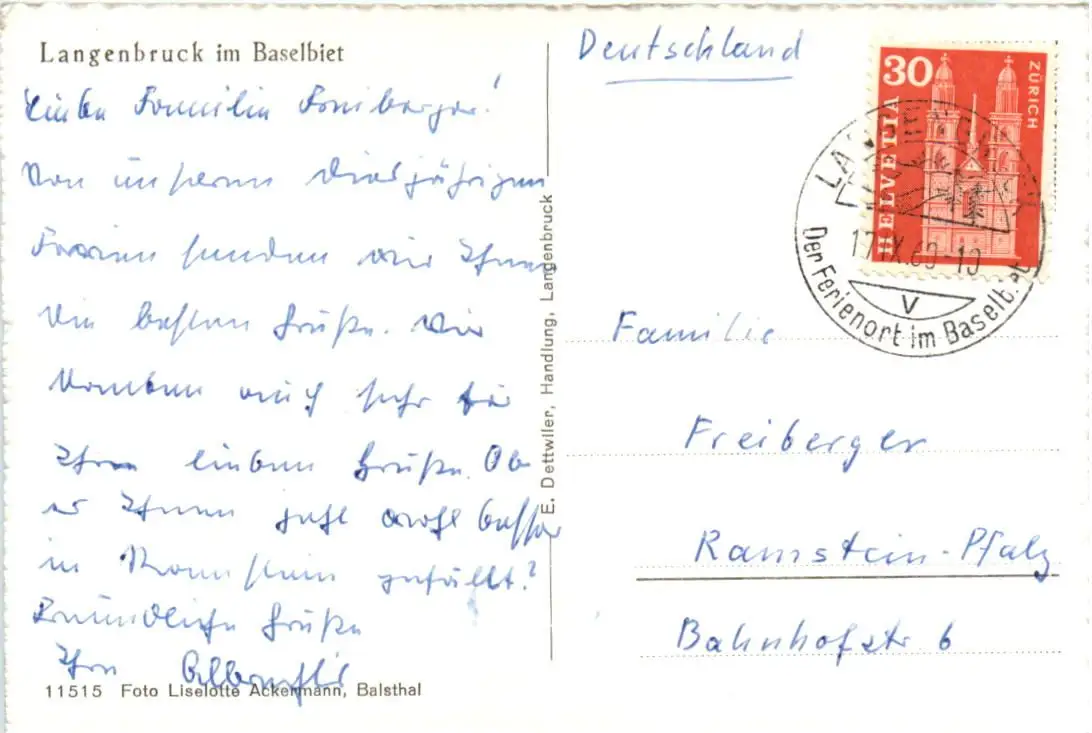 Langenbruck im Baselbiet
Liebe Familie Freiberger!
Von unseren diesjährigen
Ferien senden wir Ihnen
die besten Grüße. Wir
danken auch sehr für
Ihre lieben Grüße. Ob
es Ihnen jetzt wohl besser
in Ramstein gefällt?
Freundliche Grüße
Ihre
11515 Foto Liselotte Ackermann, Balsthal
E. Dettwiler, Handlung, Langenbruck
Deutschland
30
HELVETIA
ZÜRICH
LANGENBRUCK
17.IX.60-10
V
Der Ferienort im Baselbiet
Familie
Freiberger
Ramstein-Pfalz
Bahnhofstr 6